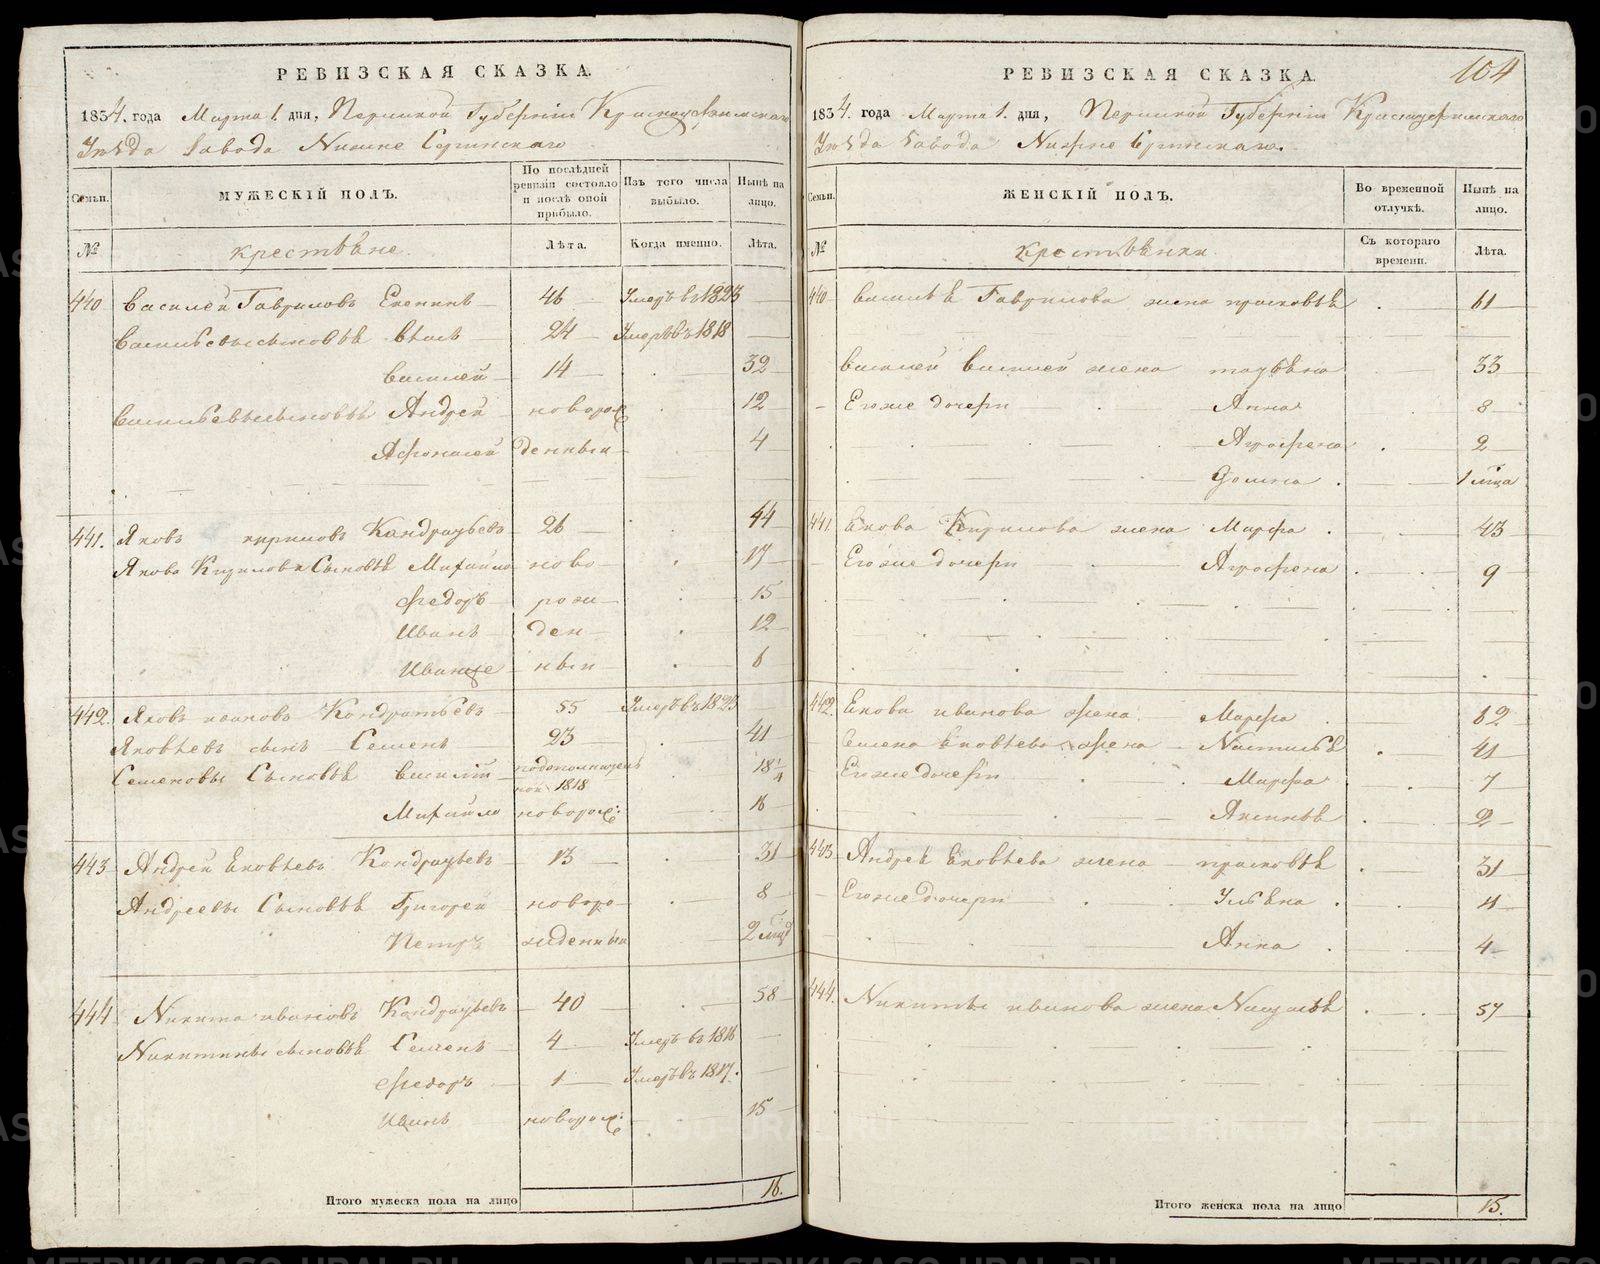 РЕВИЗСКАЯ СКАЗКА.
1834. года Марта 1. дня, Пермской Губернiи Красноуфимскаго
Уѣзда Завода Нижне Сергинскаго
Семьи. МУЖЕСКIЙ ПОЛЪ. По послѣдней ревизiи состояло и послѣ оной прибыло. Изъ того числа выбыло. Нынѣ на лицо.
№ крестьѣне. Лѣта. Когда именно. Лѣта.
440 Василей Гавриловъ 46 Умеръ въ 1823
Васильевы сыновьѣ 24 Умеръ въ 1818
Василей 14 32
Андрей новорож 12
Афонасей денныи 4
441. Яковъ кириловъ Кондратьевъ 26 44
Якова Кирилова Сыновьѣ Михайло ново 17
Федоръ рож 15
Иванъ ден 12
Иванже ныи 6
442. Яковъ ивановъ Кондратьевъ 55 Умеръ въ 1823
Яковлевъ сынъ Семенъ 23 41
Семеновы Сыновьѣ Василiй 1818 18 1/4
Михайло новорож: 16
443 Андрей Ековлевъ Кондратьевъ 13 31
Андреевы Сыновьѣ Григорей новоро 8
Петръ жденныи 2 мѣц
444 Никита ивановъ Кондратьевъ 40 58
Никитины сыновьѣ Семенъ 4 Умеръ въ 1816
Федоръ 1 Умеръ въ 1817.
Иванъ новорож: 15
Итого мужеска пола на лицо 16.
104
РЕВИЗСКАЯ СКАЗКА.
1834. года Марта 1. дня, Пермской Губернiи Красноуфимскаго
Уѣзда Завода Нижне Сергинскаго.
Семьи. ЖЕНСКIЙ ПОЛЪ. Во временной отлучкѣ. Нынѣ на лицо.
№ крестьѣнки Съ котораго времени. Лѣта.
440 Васильѣ Гаврилова жена прасковьѣ 61
Василей жена 33
Егоже дочери Анна 8
Агрофена 2
Домна 1 мѣца
441. Екова Кирилова жена Марфа 43
Егоже дочери Агрофена 9
442. Екова иванова жена Марфа 62
Семена Ековлева жена Настасьѣ 41
Егоже дочери Марфа 7
Аксиньѣ 2
443 Андреѣ Ековлева жена прасковьѣ 31
Егоже дочери Ульѣна 11
Анна 4
444. Никиты иванова жена Наталѣѣ 57
Итого женска пола на лицо 15.